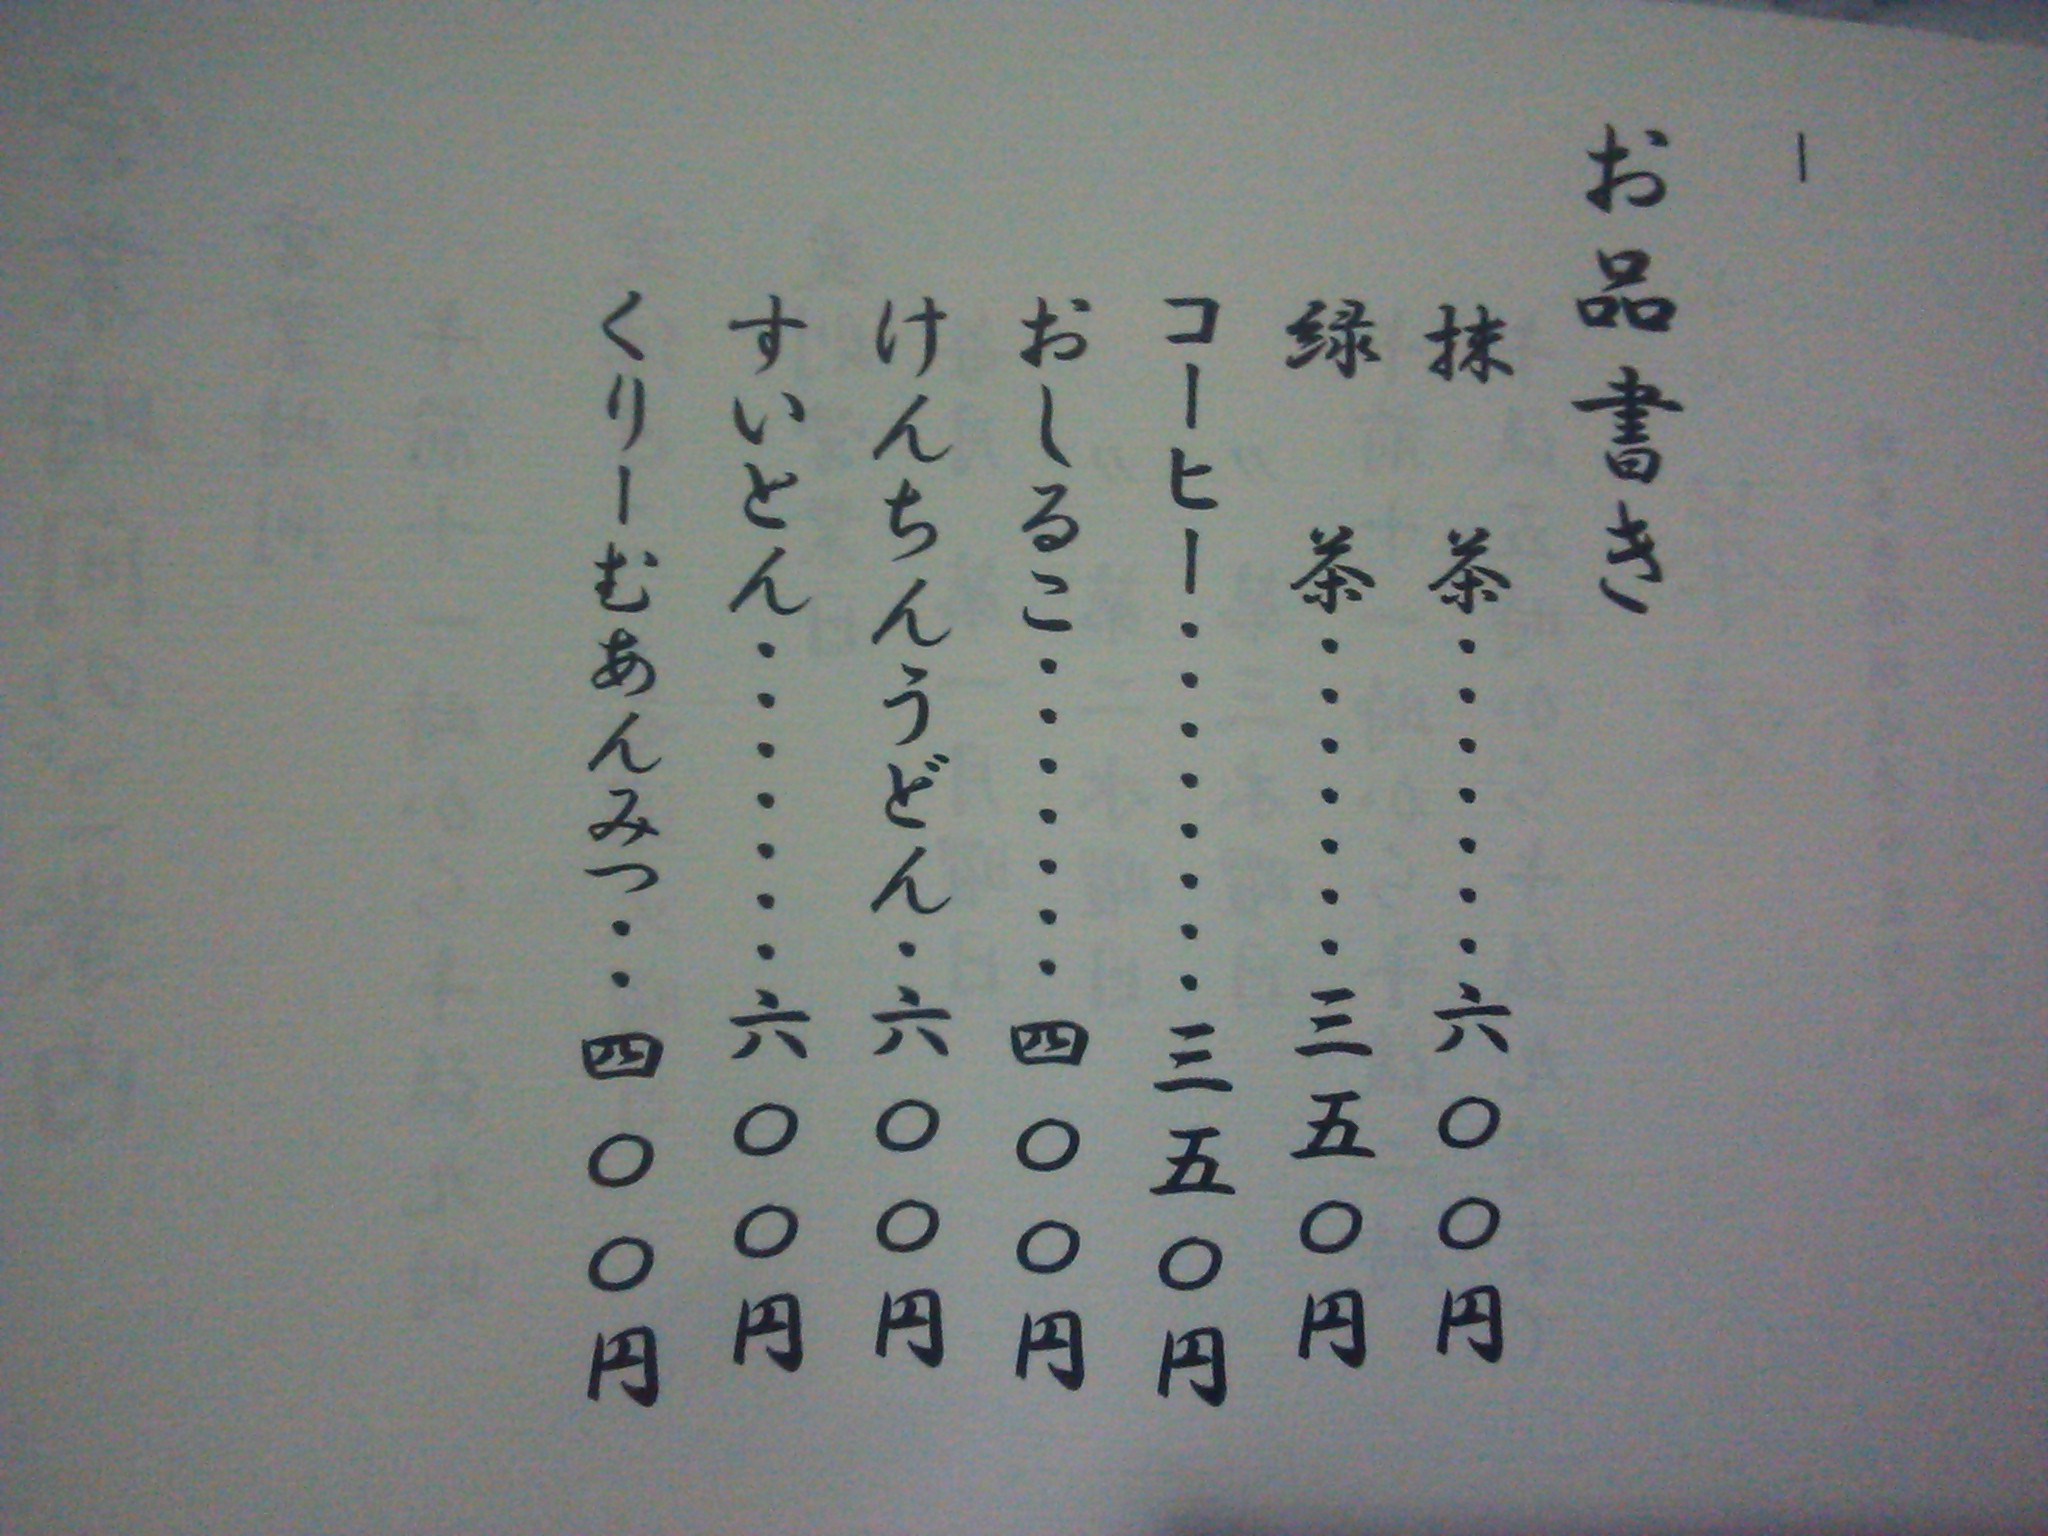 お品書き
抹　茶・・・・・・・六〇〇円
緑　茶・・・・・・・三五〇円
コーヒー・・・・・・・・三五〇円
おしるこ・・・・・・・四〇〇円
けんちんうどん・六〇〇円
すいとん・・・・・・・六〇〇円
くりーむあんみつ・・四〇〇円